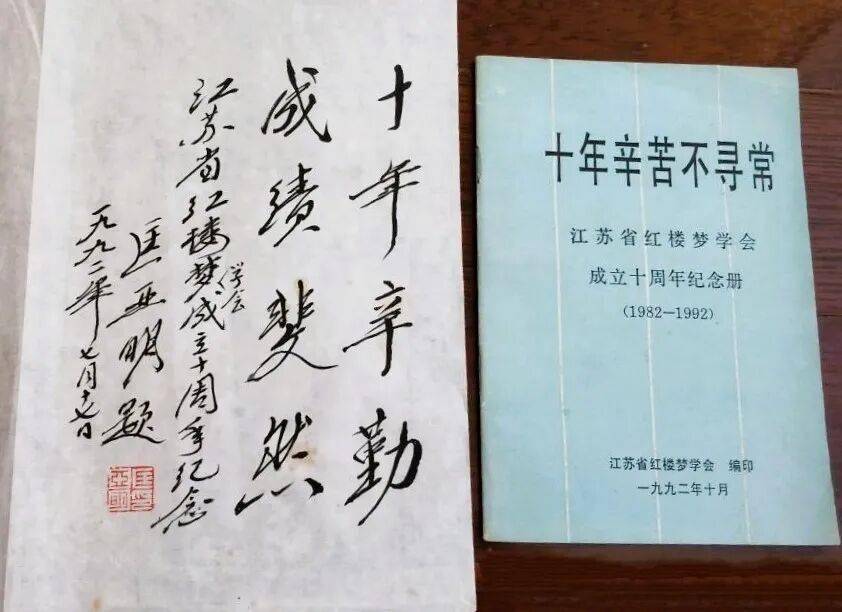 十年辛勤
成绩斐然
江苏省红楼梦学会成立十周年纪念
匡亚明题
一九九二年七月十七日
十年辛苦不寻常
江苏省红楼梦学会
成立十周年纪念册
(1982—1992)
江苏省红楼梦学会 编印
一九九二年十月